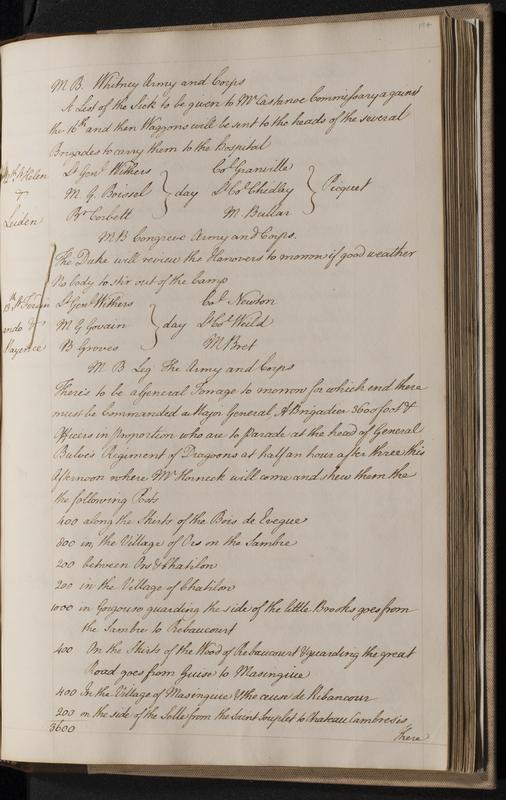 M B. Whitney Army and Corps
A List of the Sick to be given to Mr Castanoe Commissary against
the 16th and then Waggons will be sent to the heads of the several
Brigades to carry them to the Hospital
Helen & Leiden
Lt Genl Withers
M. G. Boissel
Br Corbett
day
Col Granville
Lt Col Chedley
M Bullar
Picquet
M B Congreve Army and Corps.
The Duke will review the Hanovers to morrow if good weather
No body to stir out of the Camp
13th
ando &
Lt Genl Withers
M G Govain
B Groves
day
Col Newton
Lt Col Weild
M Bret
M B Leg The Army and Corps
There's to be a General Forage to morrow for which end there
must be Commanded a Major General, A Brigadier 3600 foot &
Officers in Proportion who are to Parade at the head of General
Bulow's Regiment of Dragoons at half an hour after three this
Afternoon where Mr Horneck will come and shew them the
the following Posts
400 along the Skirts of the Bois de Eveque
800 in, the Village of Ors on the Sambre
200 between Ors & Chatilon
200 in the Village of Chatilon
1000 in Gorgouse guarding the side of the little Brooks goes from
the Sambre to Rebaucourt
400 On the Skirts of the Wood of Rebaucourt & guarding the great
Road goes from Guise to Masinguie
400 In the Village of Masinguie & the cense de Ribancour
200 on the side of the Selle from the Saint Souplet to Chateau Cambresis
3600
There